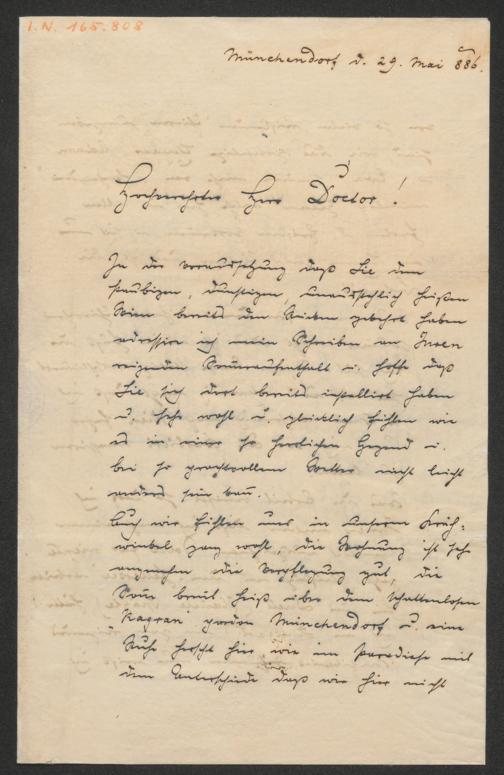 I.N. 165.808
Münchendorf d. 29. Mai 886.
Hochverehrter Herr Doctor!
In der Voraussetzung daß Sie dem
staubigen, dunstigen, unausstehlich heißen
Wien bereits den Rücken gekehrt haben
adressire ich mein Schreiben an Ihren
reizenden Sommeraufenthalt u. hoffe daß
Sie sich dort bereits installirt haben
u. sehr wohl u. glücklich fühlen wie
es in einer so herrlichen Gegend u.
bei so prachtvollem Wetter nicht leicht
anders sein kann.
Auch wir fühlen uns in unserem Kräh-
winkel ganz wohl, die Wohnung ist sehr
angenehm die Verpflegung gut, die
Sonne brennt heiß über dem schattenlosen
Münchendorf u. eine
Ruhe herrscht hier, wie im Paradiese mit
dem Unterschiede daß wir hier nicht